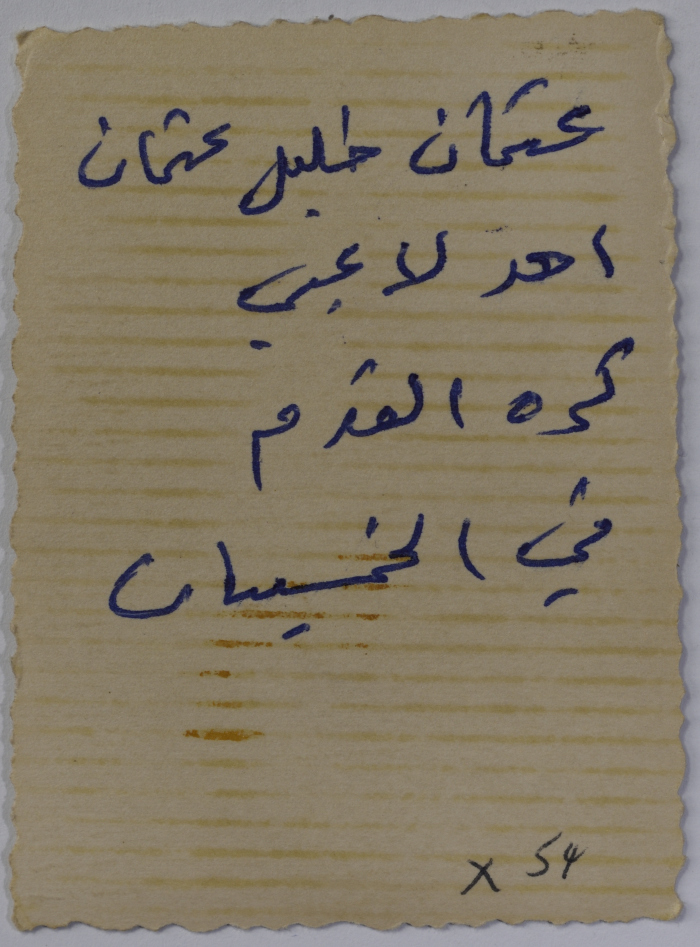 عثمان خليل عثمان
احد لاعبي
كره القدم
في الخمسينات
X 54